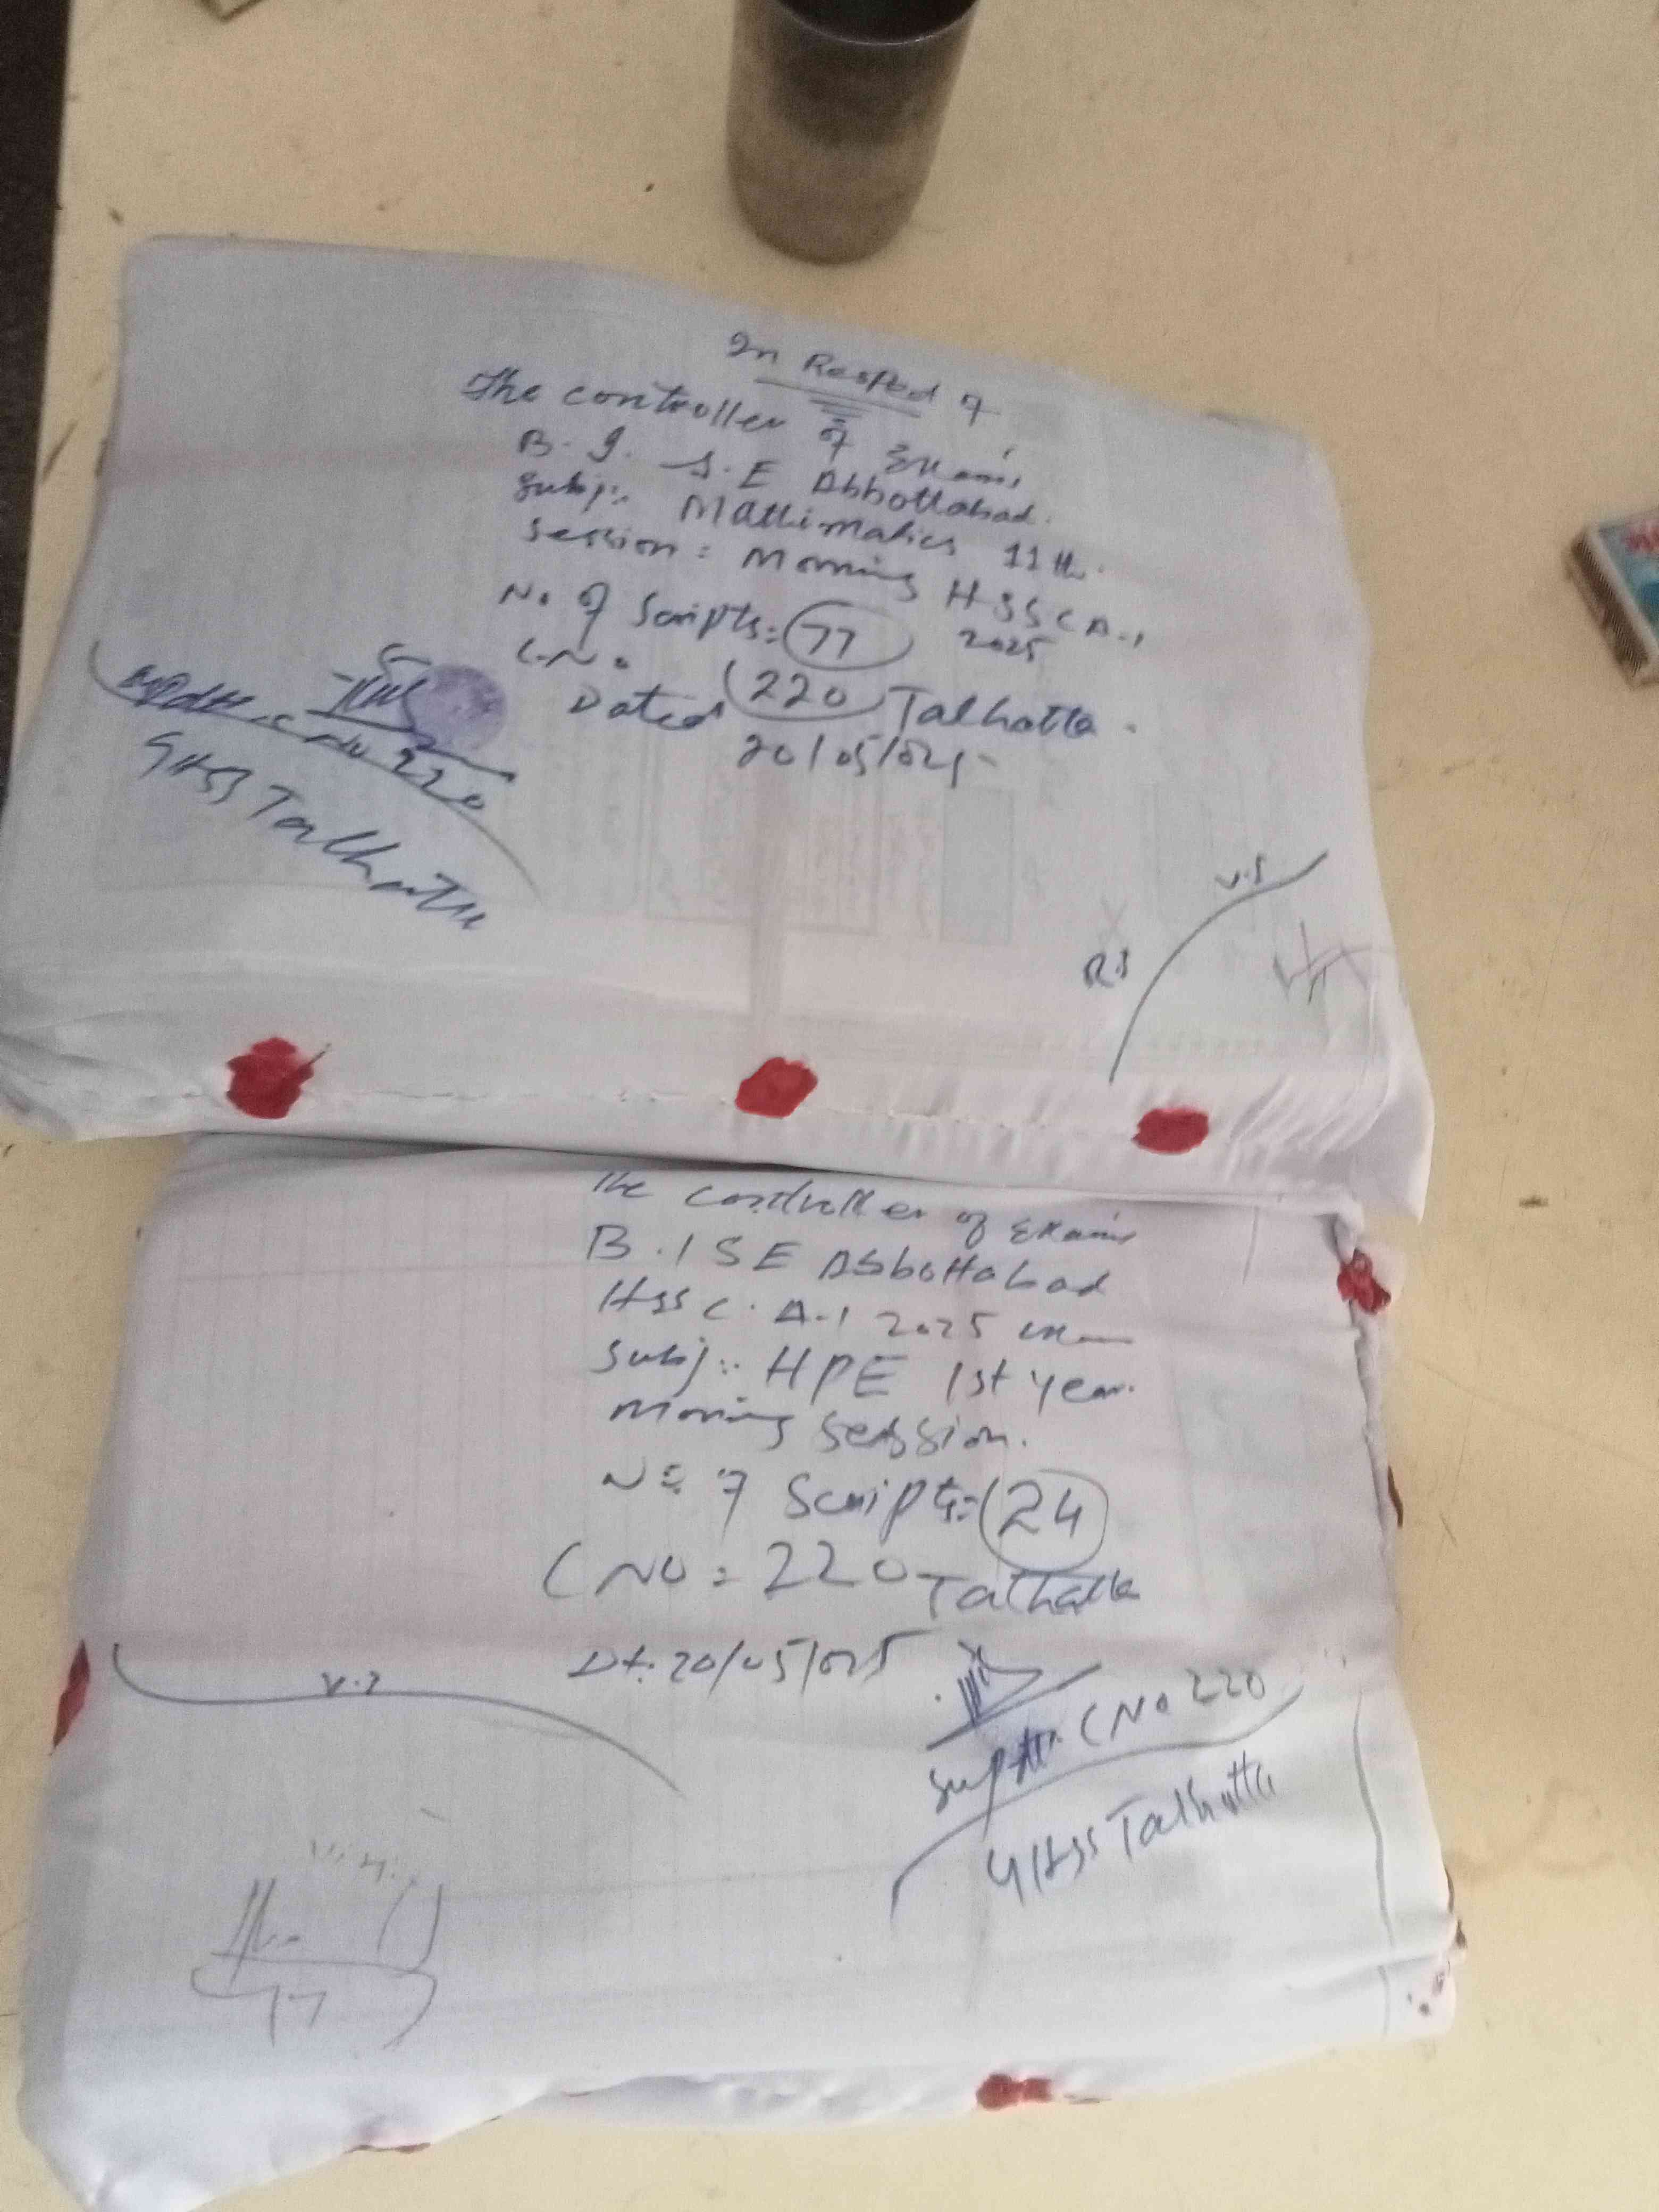 In Respect of
The controller of Exams
B. I. S. E Abbottabad.
Subj:. Mathimatics 11th.
Session: Morning HSSC A-1
2025
No of Scripts: 77
C.No 220 Talhatta.
Dated 20/05/025
C.No 220
GHSS Talhatta
V.S
R.S
The controller of Exams
B.ISE Abbottabad
HSSC. A-1 2025 Exam
Subj:. HPE 1st year.
Morning Session.
No of Scripts: 24
C NO: 220 Talhatta
Dt: 20/05/025
Supdtt: C No 220
GHSS Talhatta